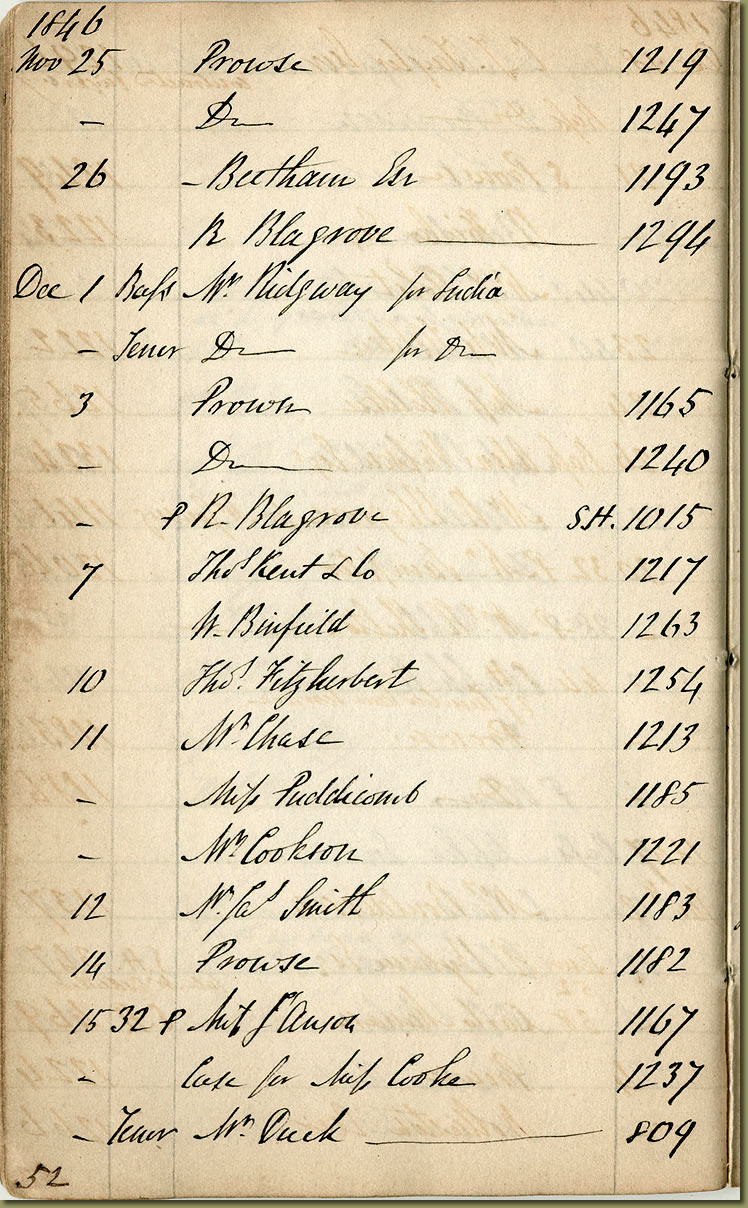 1846
Nov 25 Prowse 1219
– Do 1247
26 – Beetham Esr 1193
R Blagrove 1294
Dec 1 Bass Mr. Ridgway for India
– Tenor Do for Do
3 Prowse 1165
– Do 1240
– P R. Blagrove S.H. 1015
7 Thos Kent & Co 1217
W. Binfield 1263
10 Thos. Fitzherbert 1254
11 Mr. Chase 1213
– Miss Puddicomb 1185
– Mr. Cookson 1221
12 Mr. Jas Smith 1183
14 Prowse 1182
15 32 P J'Anson 1167
– Case for Miss Cooke 1237
– Tenor Mr. Duck 809
52